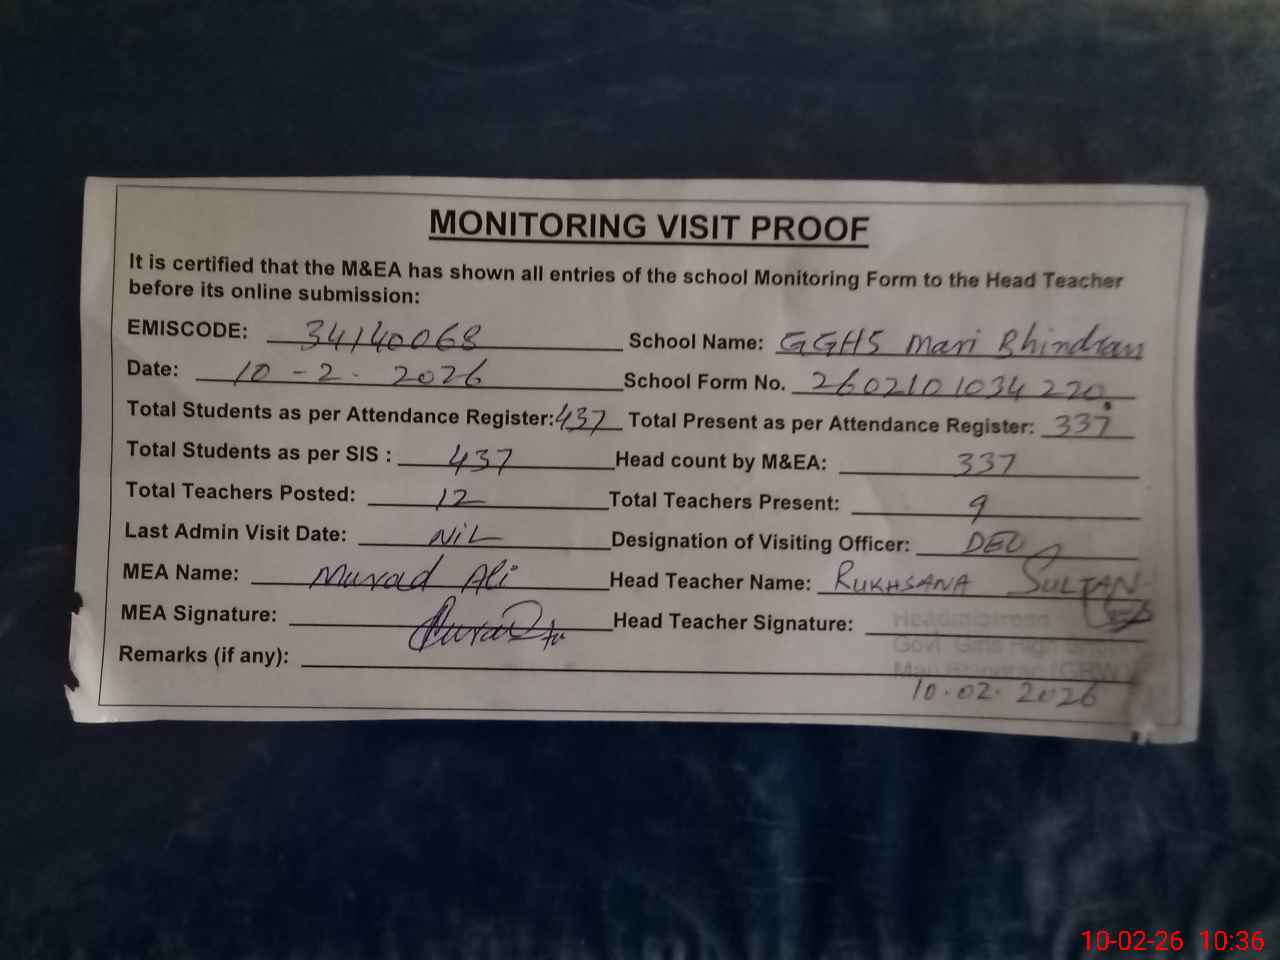 MONITORING VISIT PROOF
It is certified that the M&EA has shown all entries of the school Monitoring Form to the Head Teacher
before its online submission:
EMISCODE: 34140068 School Name: GGHS Mari Bhindran
Date: 10-2-2026 School Form No. 2602101034220
Total Students as per Attendance Register: 437 Total Present as per Attendance Register: 337
Total Students as per SIS : 437 Head count by M&EA: 337
Total Teachers Posted: 12 Total Teachers Present: 9
Last Admin Visit Date: NiL Designation of Visiting Officer: DEO
MEA Name: Murad Ali Head Teacher Name: RUKHSANA SULTAN
MEA Signature: Head Teacher Signature:
Headmistress
Govt Girls High
Remarks (if any):
Mari Bhindran (GRW)
10.02.2026
10-02-26 10:36